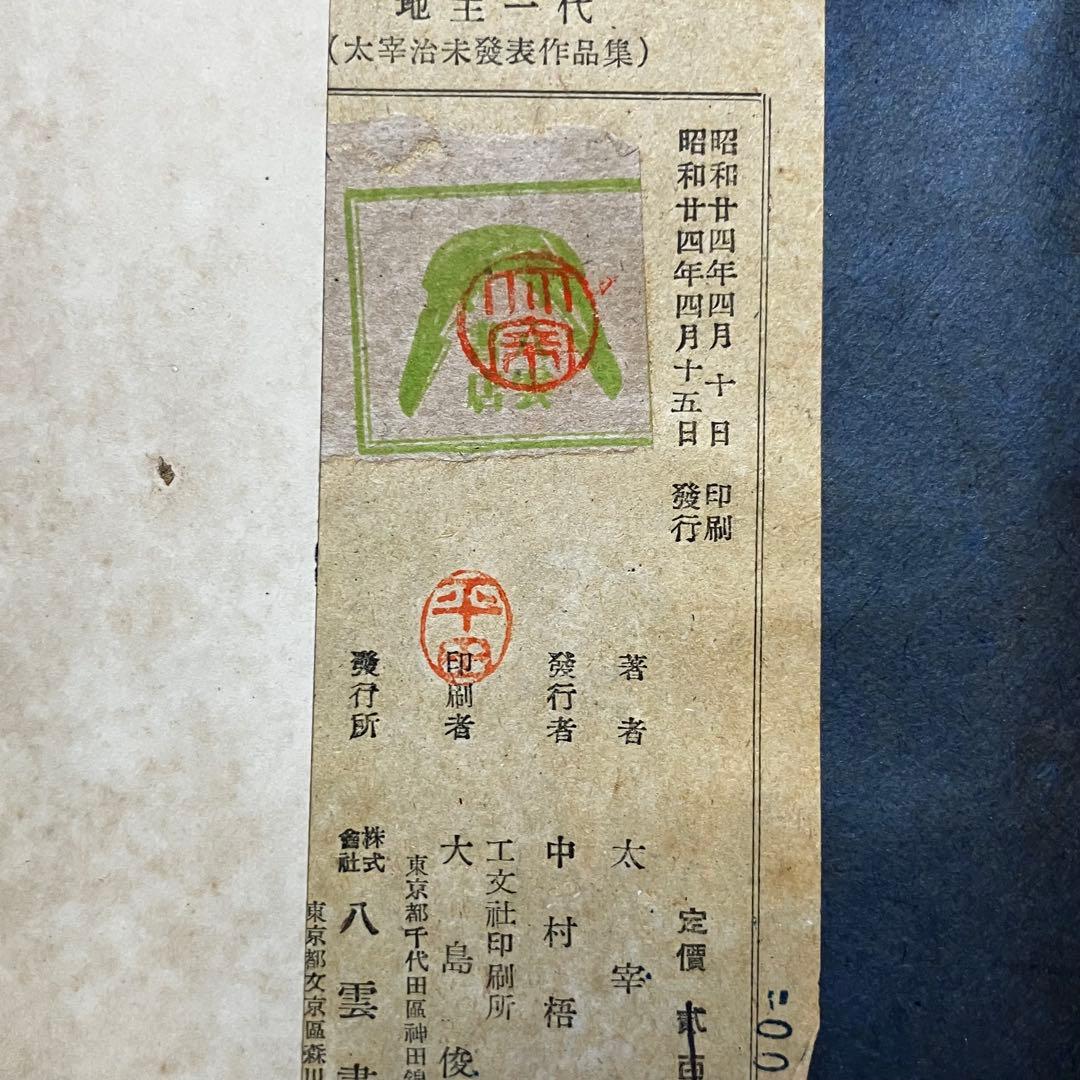 地主一代
(太宰治未發表作品集)
昭和廿四年四月十日 印刷
昭和廿四年四月十五日 發行
定價 貳百
00
著者 太宰
發行者 中村梧
工文社印刷所
印刷者 大島俊
東京都千代田區神田錦
發行所 株式會社 八雲書
東京都文京區森川
太宰
平田